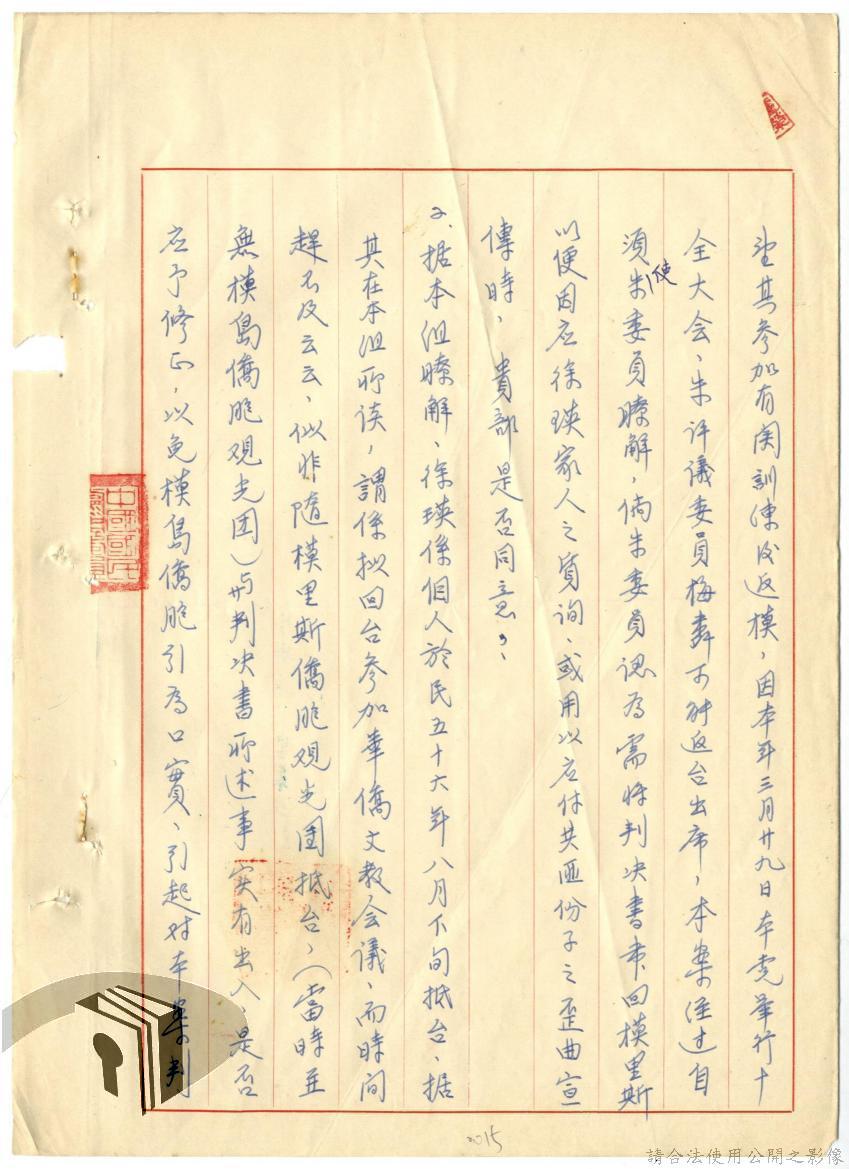 望其參加有関訓練後返模，因本年三月廿九日本党舉行十
全大会、朱評議委員梅麟可能返台出席，本案經过自
須使朱委員瞭解，倘朱委員認為需将判决書帶回模里斯
以便因应徐瑛家人之質詢、或用以应付共匪份子之歪曲宣
傳時，貴部是否同意？
2、据本组瞭解、徐瑛係個人於民五十六年八月下旬抵台、据
其在本组所談，謂係拟回台參加華僑文教会議、而時間
趕不及云云、似非隨模里斯僑胞观光團抵台，（當時並
無模島僑胞观光团）與判决書所述事実有出入、是否
应予修正，以免模島僑胞引為口實、引起对本案判
中國國民
2015
請合法使用公開之影像